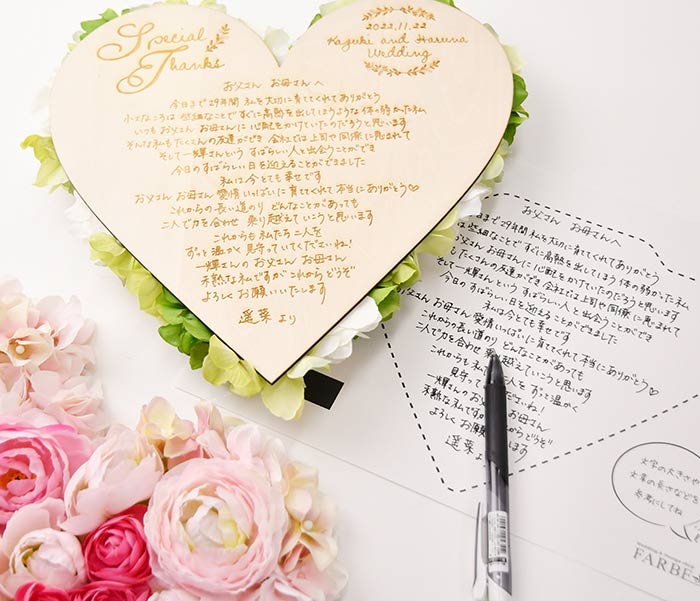 Special
Thanks
2022.11.22
Kazuki and Haruna
Wedding
お父さん お母さんへ
今日まで29年間 私を大切に育ててくれてありがとう
小さなころは 些細なことで すぐに高熱を出してしまうような 体の弱かった私
いつも お父さん お母さんに 心配をかけていたのだろうと思います
そんな私も たくさんの友達ができ 会社では上司や同僚に恵まれて
そして 一輝さんという すばらしい人と出会うことができ
今日のすばらしい日を迎えることができました
私は今とても幸せです
お父さん お母さん 愛情いっぱいに育ててくれて本当にありがとう♡
これからの長い道のり どんなことがあっても
二人で力を合わせ 乗り越えていこうと思います
これからも 私たち二人を
ずっと温かく見守っていてくださいね!
一輝さんの お父さん お母さん
未熟な私ですが これから どうぞ
よろしくお願いいたします
遥菜 より
お父さん お母さんへ
日まで29年間 私を大切に育ててくれてありがとう
は 些細なことで すぐに高熱を出してしまう ような 体の弱かった私
お父さん お母さんに 心配をかけていたのだろうと思います
たくさんの友達ができ 会社では上司や同僚に恵まれて
そして 一輝さんという すばらしい人と出会うことができ
今日のすばらしい日を迎えることができました
私は今とても幸せです
父さん お母さん 愛情いっぱいに育ててくれて本当にありがとう♡
これからの長い道のり どんなことがあっても
二人で力を合わせ 乗り越えていこうと思います
これからも 私た 二人を ずっと温かく
見守って ださいね!
一輝さんの お父 お母さん
未熟な私ですが からどうぞ
よろしくお願 します
遥菜 よ
文字の大きさや
文章の長さなどを
参考にしてね
FARBE